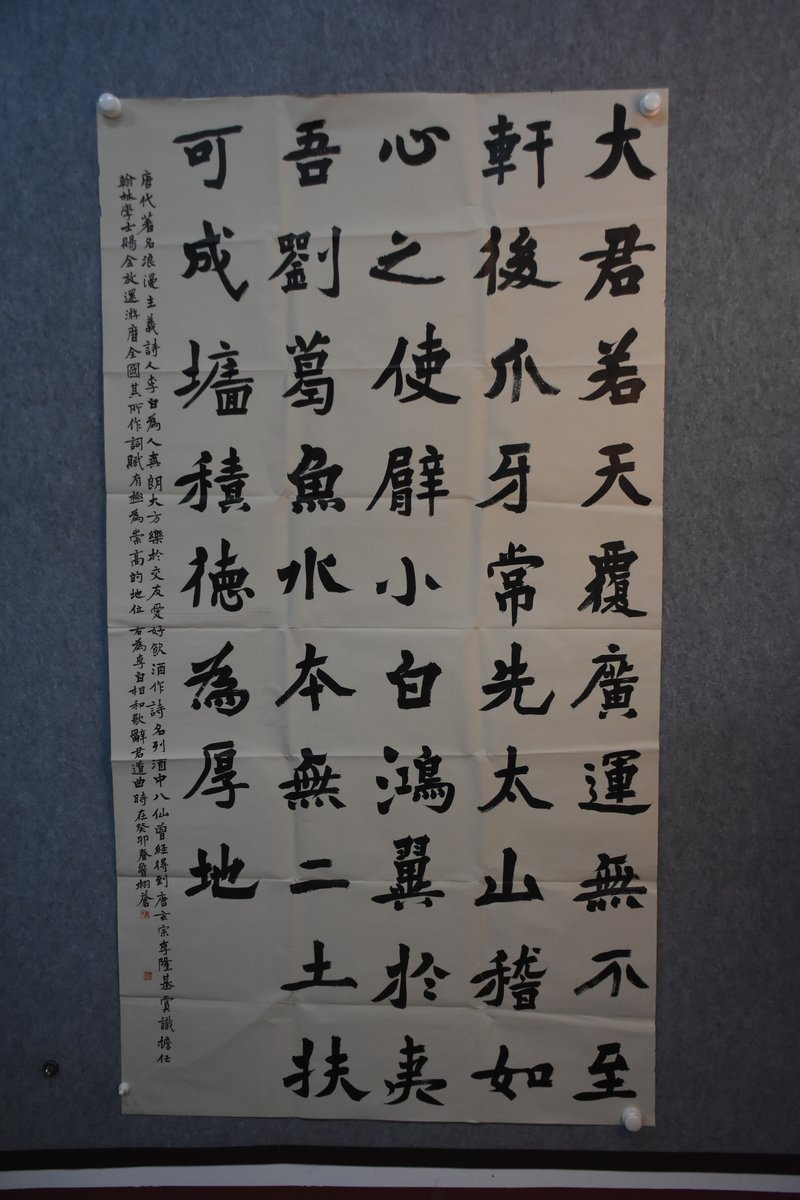 大君若天覆廣運無不至
軒後爪牙常先太山稽如
心之使臂小白鴻翼於夷
吾劉葛魚水本無二土扶
可成墻積德為厚地
唐代著名浪漫主義詩人李白為人爽朗大方樂於交友愛好飲酒作詩名列酒中八仙曾經得到唐玄宗李隆基賞識擔任
翰林學士賜金放還游曆全國其所作詞賦有極為崇高的地位右為李白相和歌辭君道曲時在癸卯春魯栩蒼